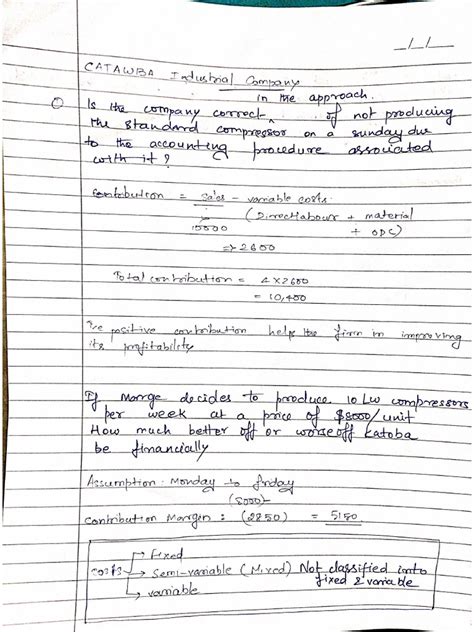 _/_/_
CATAWBA Industrial Company
in the approach
Is the company correct ^ of not producing
the standard compressor on a sunday due
to the accounting procedure associated
with it?
Contribution = Sales - variable costs
(Direct labour + material
10000 + ODC)
=> 2600
Total contribution = 4x2600
= 10,400
The positive contribution helps the firm in improving
its profitability
If Marge decides to produce 10 LW compressors
per week at a price of $8000/unit
How much better off or worse off Katoba
be financially
Assumption: Monday to friday
(8000-
Contribution Margin: (2850) = 5150
→ Fixed
costs → Semi-variable (Mixed) Not classified into
fixed & variable
→ variable